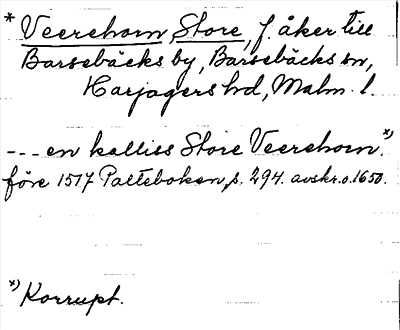 * Veerehorn Store, f. åker till
Barsebäcks by, Barsebäcks sn,
Harjagers hd, Malm. l.
--- en kalliss Store Veerehorn.*)
före 1517 Palteboken, s. 294. avskr. o. 1650.
*) Korrupt.